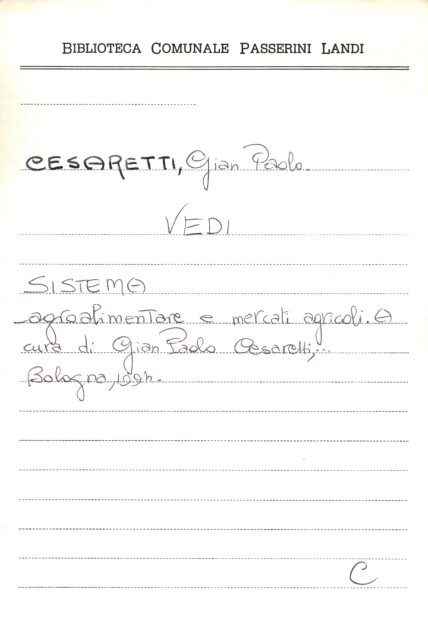 BIBLIOTECA COMUNALE PASSERINI LANDI
CESARETTI, Gian Paolo.
VEDI
SISTEMA
agroalimentare e mercati agricoli. A
cura di Gian Paolo Cesaretti,...
Bologna,
C